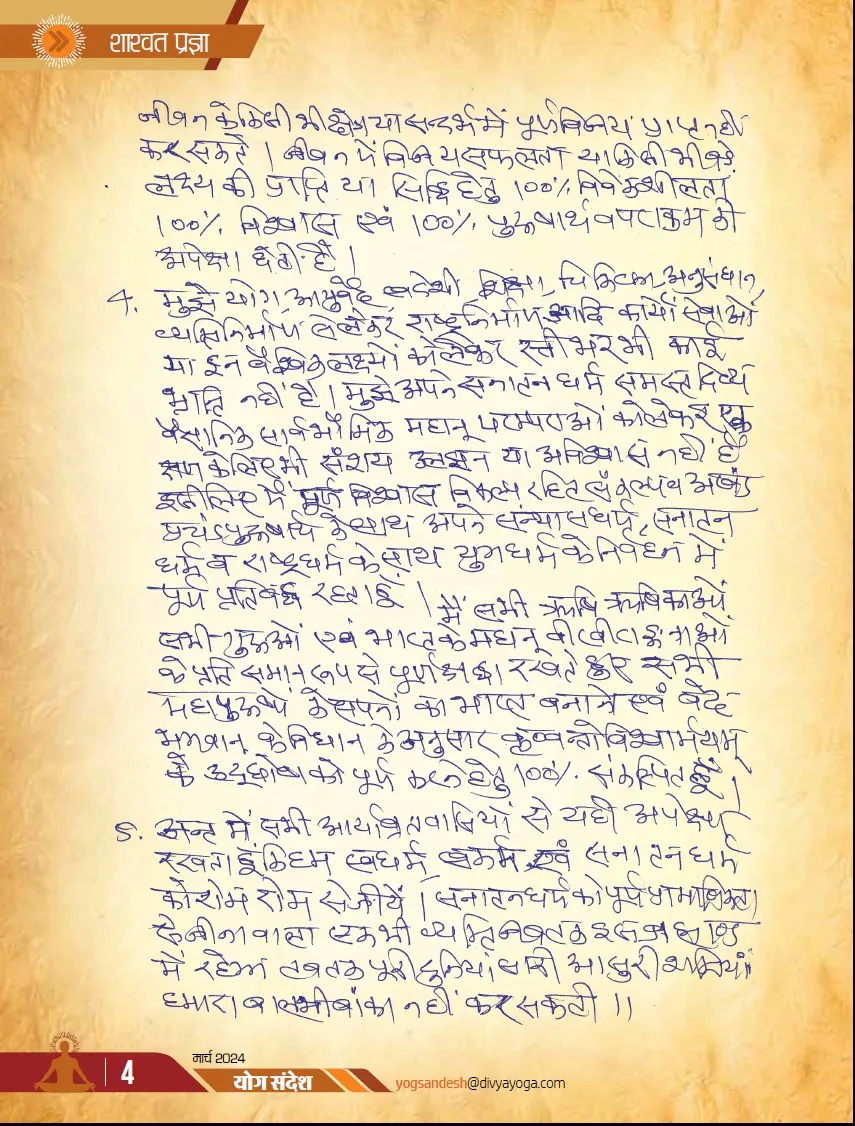 शाश्वत प्रज्ञा
जीवन के किसी भी क्षेत्र या सन्दर्भ में पूर्ण विजय प्राप्त नहीं
कर सकते । जीवन में विजय सफलता या किसी भी बड़े
लक्ष्य की प्राप्ति या सिद्धि हेतु 100% विवेकशीलता
100% विश्वास एवं 100% पुरूषार्थ व पराक्रम की
अपेक्षा होती है ।
4. मुझे योग, आयुर्वेद स्वदेशी शिक्षा, चिकित्सा, अनुसंधान,
व्यक्ति निर्माण से लेकर राष्ट्र निर्माण आदि कार्यों सेवाओं
या इन वैश्विक लक्ष्यों को लेकर रत्ती भर भी कोई
भ्रान्ति नहीं है । मुझे अपने सनातन धर्म समस्त दिव्य
वैज्ञानिक सार्वभौमिक महान् परम्पराओं को लेकर एक
क्षण के लिए भी संशय उलझन या अविश्वास नहीं है
इसीलिए मैं पूर्ण विश्वास विकल्प रहित संकल्प व अखंड
प्रचंड पुरूषार्थ के साथ अपने संन्यास धर्म, सनातन
धर्म व राष्ट्रधर्म के साथ युगधर्म के निर्वहन में
पूर्ण प्रतिबद्ध रहता हूँ । मैं सभी ऋषि ऋषिकाओं
सभी गुरूओं एवं भारत के महान् वीर वीरांङ्गनाओं
के प्रति समान रूप से पूर्ण श्रद्धा रखते हुए सभी
महापुरूषों के सपनों का भारत बनाने एवं वेद
भगवान् के विधान के अनुसार कृण्वन्तो विश्वमार्यम्
के उद्घोष को पूर्ण करने हेतु 100% संकल्पित हूँ ।
5. अन्त में सभी आर्यावर्तवासियों से यही अपेक्षा
रखता हूँ कि हम स्वधर्म स्वकर्म एवं सनातन धर्म
को रोम रोम से जीयें । सनातन धर्म को पूर्ण प्रामाणिकता
से जीने वाला एक भी व्यक्ति जब तक इस ब्रह्माण्ड
में रहेगा तब तक पूरी दुनियां की सारी आसुरी शक्तियां
हमारा बाल भी बांका नहीं कर सकती ।।
मार्च 2024
4
योग संदेश
yogsandesh@divyayoga.com